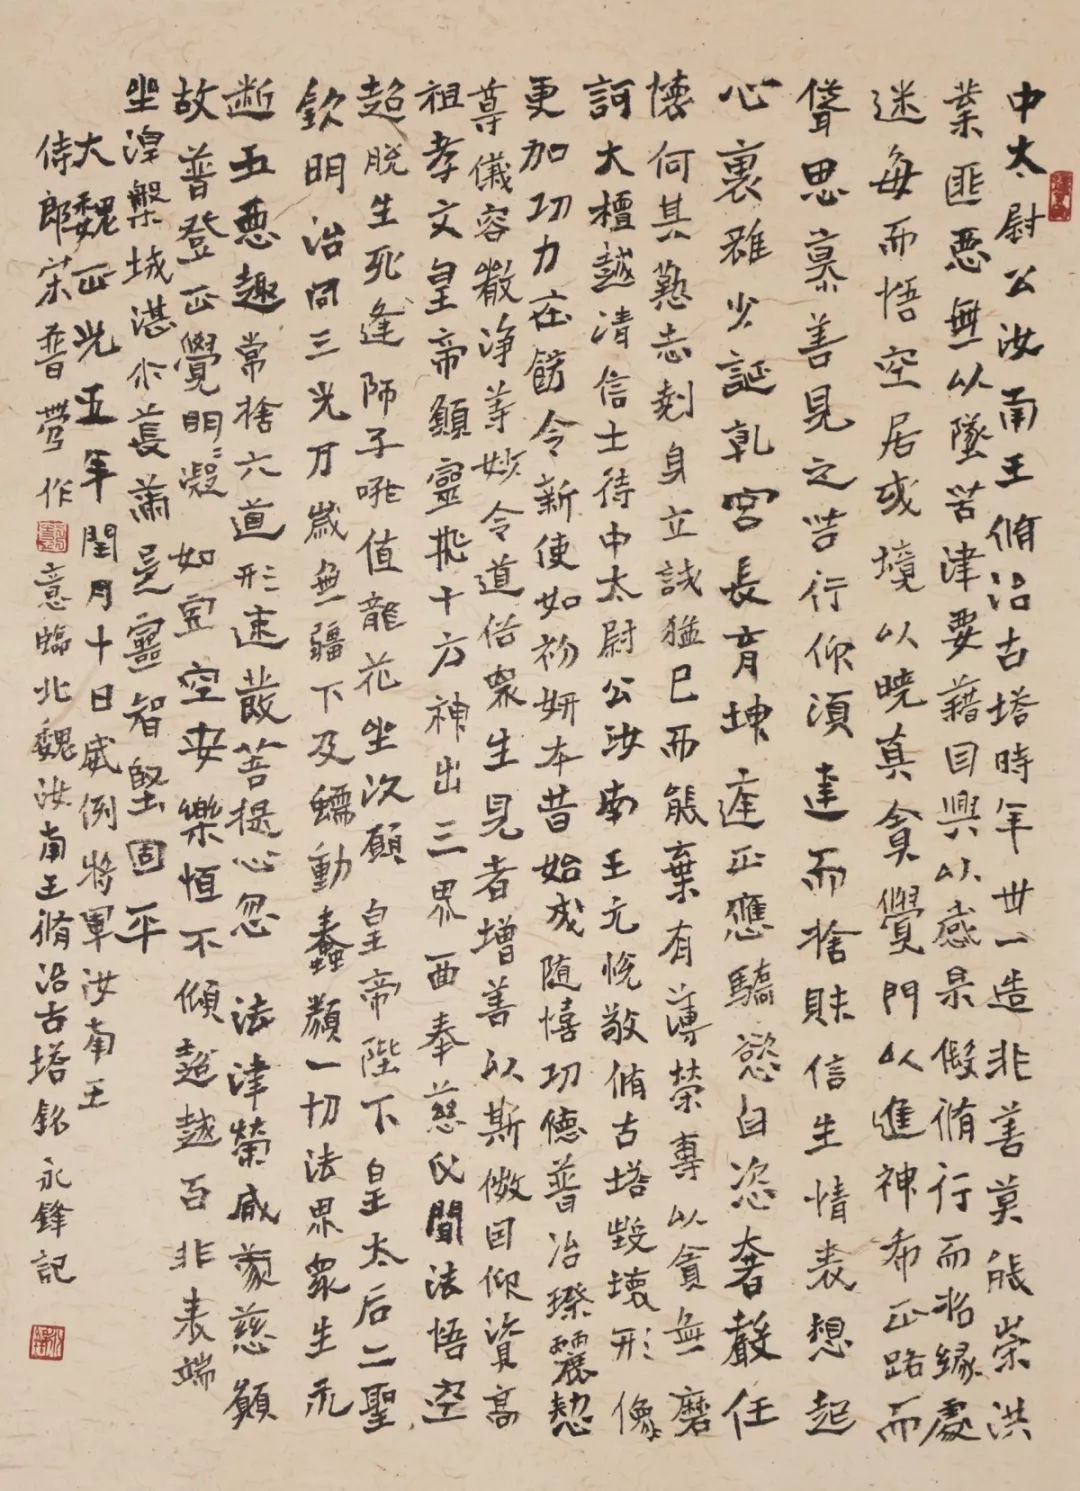 中太尉公汝南王脩治古塔時年卅一造非善莫能崇洪
業匪惡無以墜苦津要藉因興以感果假脩行而招緣處
迷每而悟空居或境以曉真貪覺門以進神希正路而
聳思慕善見之苦行仰須達而捨財信生情表想起
心裏雖少誕乹宮長育坤庭正應驕慾自恣奢聲任
懷何其懃志刻身立誠猛已而能棄有薄榮專以貪無磨
訶大檀越清信士侍中太尉公汝南王元悅敬脩古塔毀壞形像
更加功力在餝令新使如初妍本昔始成随憘功德普冶璨麗懃
尊儀容嚴淨等妙令道俗衆生見者增善以斯微因仰資高
祖孝文皇帝願靈挑十方神出三界面奉慈氏聞法悟空
超脫生死逢師子吼值龍花坐次願皇帝陛下皇太后二聖
欽明治同三光万歲無疆下及蠕動蠢類一切法界衆生永
斷五惡趣常捨六道形速發菩提心忽法津榮咸蒙慈願
故普登正覺明明凝如空安樂恒不傾超越百非表端
坐湟槃城湛尒長蕭是靈智堅固平
大魏正光五年閏月十日威例將軍汝南王
侍郎宋普營作
意臨北魏汝南王脩治古塔銘永鋒記